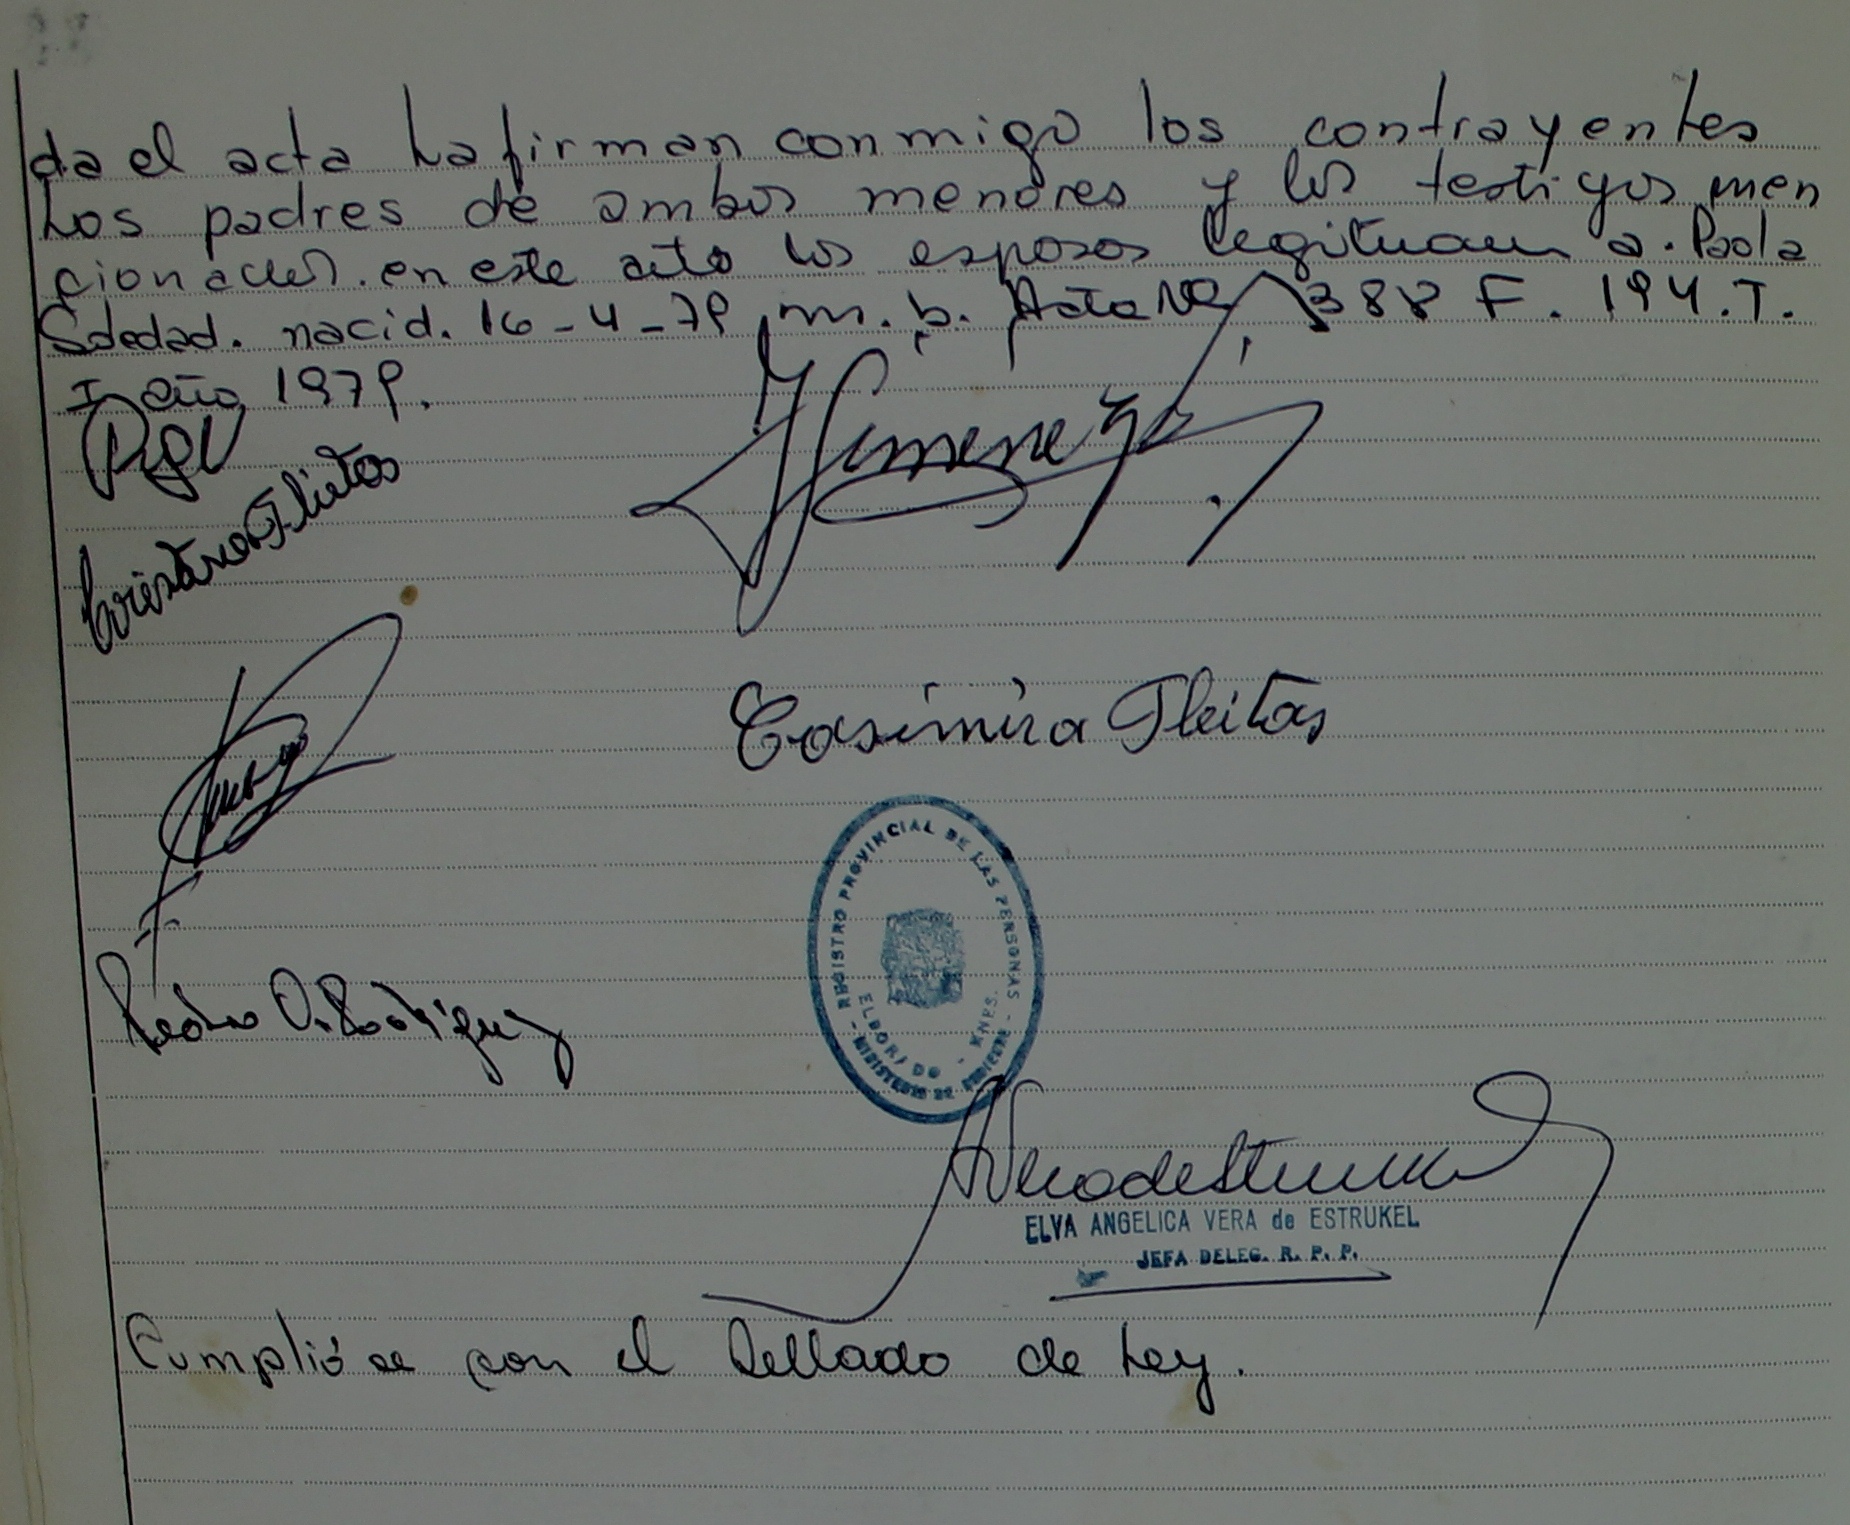 da el acta La firman conmigo los contrayentes
Los padres de ambos menores y los testigos men
cionados. en este acto los esposos legitiman a. Paola
Soledad. nacid. 16-4-79, m. b. Acta Nº 388 F. 194. T.
I año 1979.
Gimenez
Cristano Fleitas
Casimira Fleitas
Pedro O. Rodriguez
- REGISTRO PROVINCIAL DE LAS PERSONAS -
MINISTERIO DE GOBIERNO
ELDORADO - MNES.
ELVA ANGELICA VERA de ESTRUKEL
JEFA DELEG. R. P. P.
Cumplió se con el Sellado de Ley.